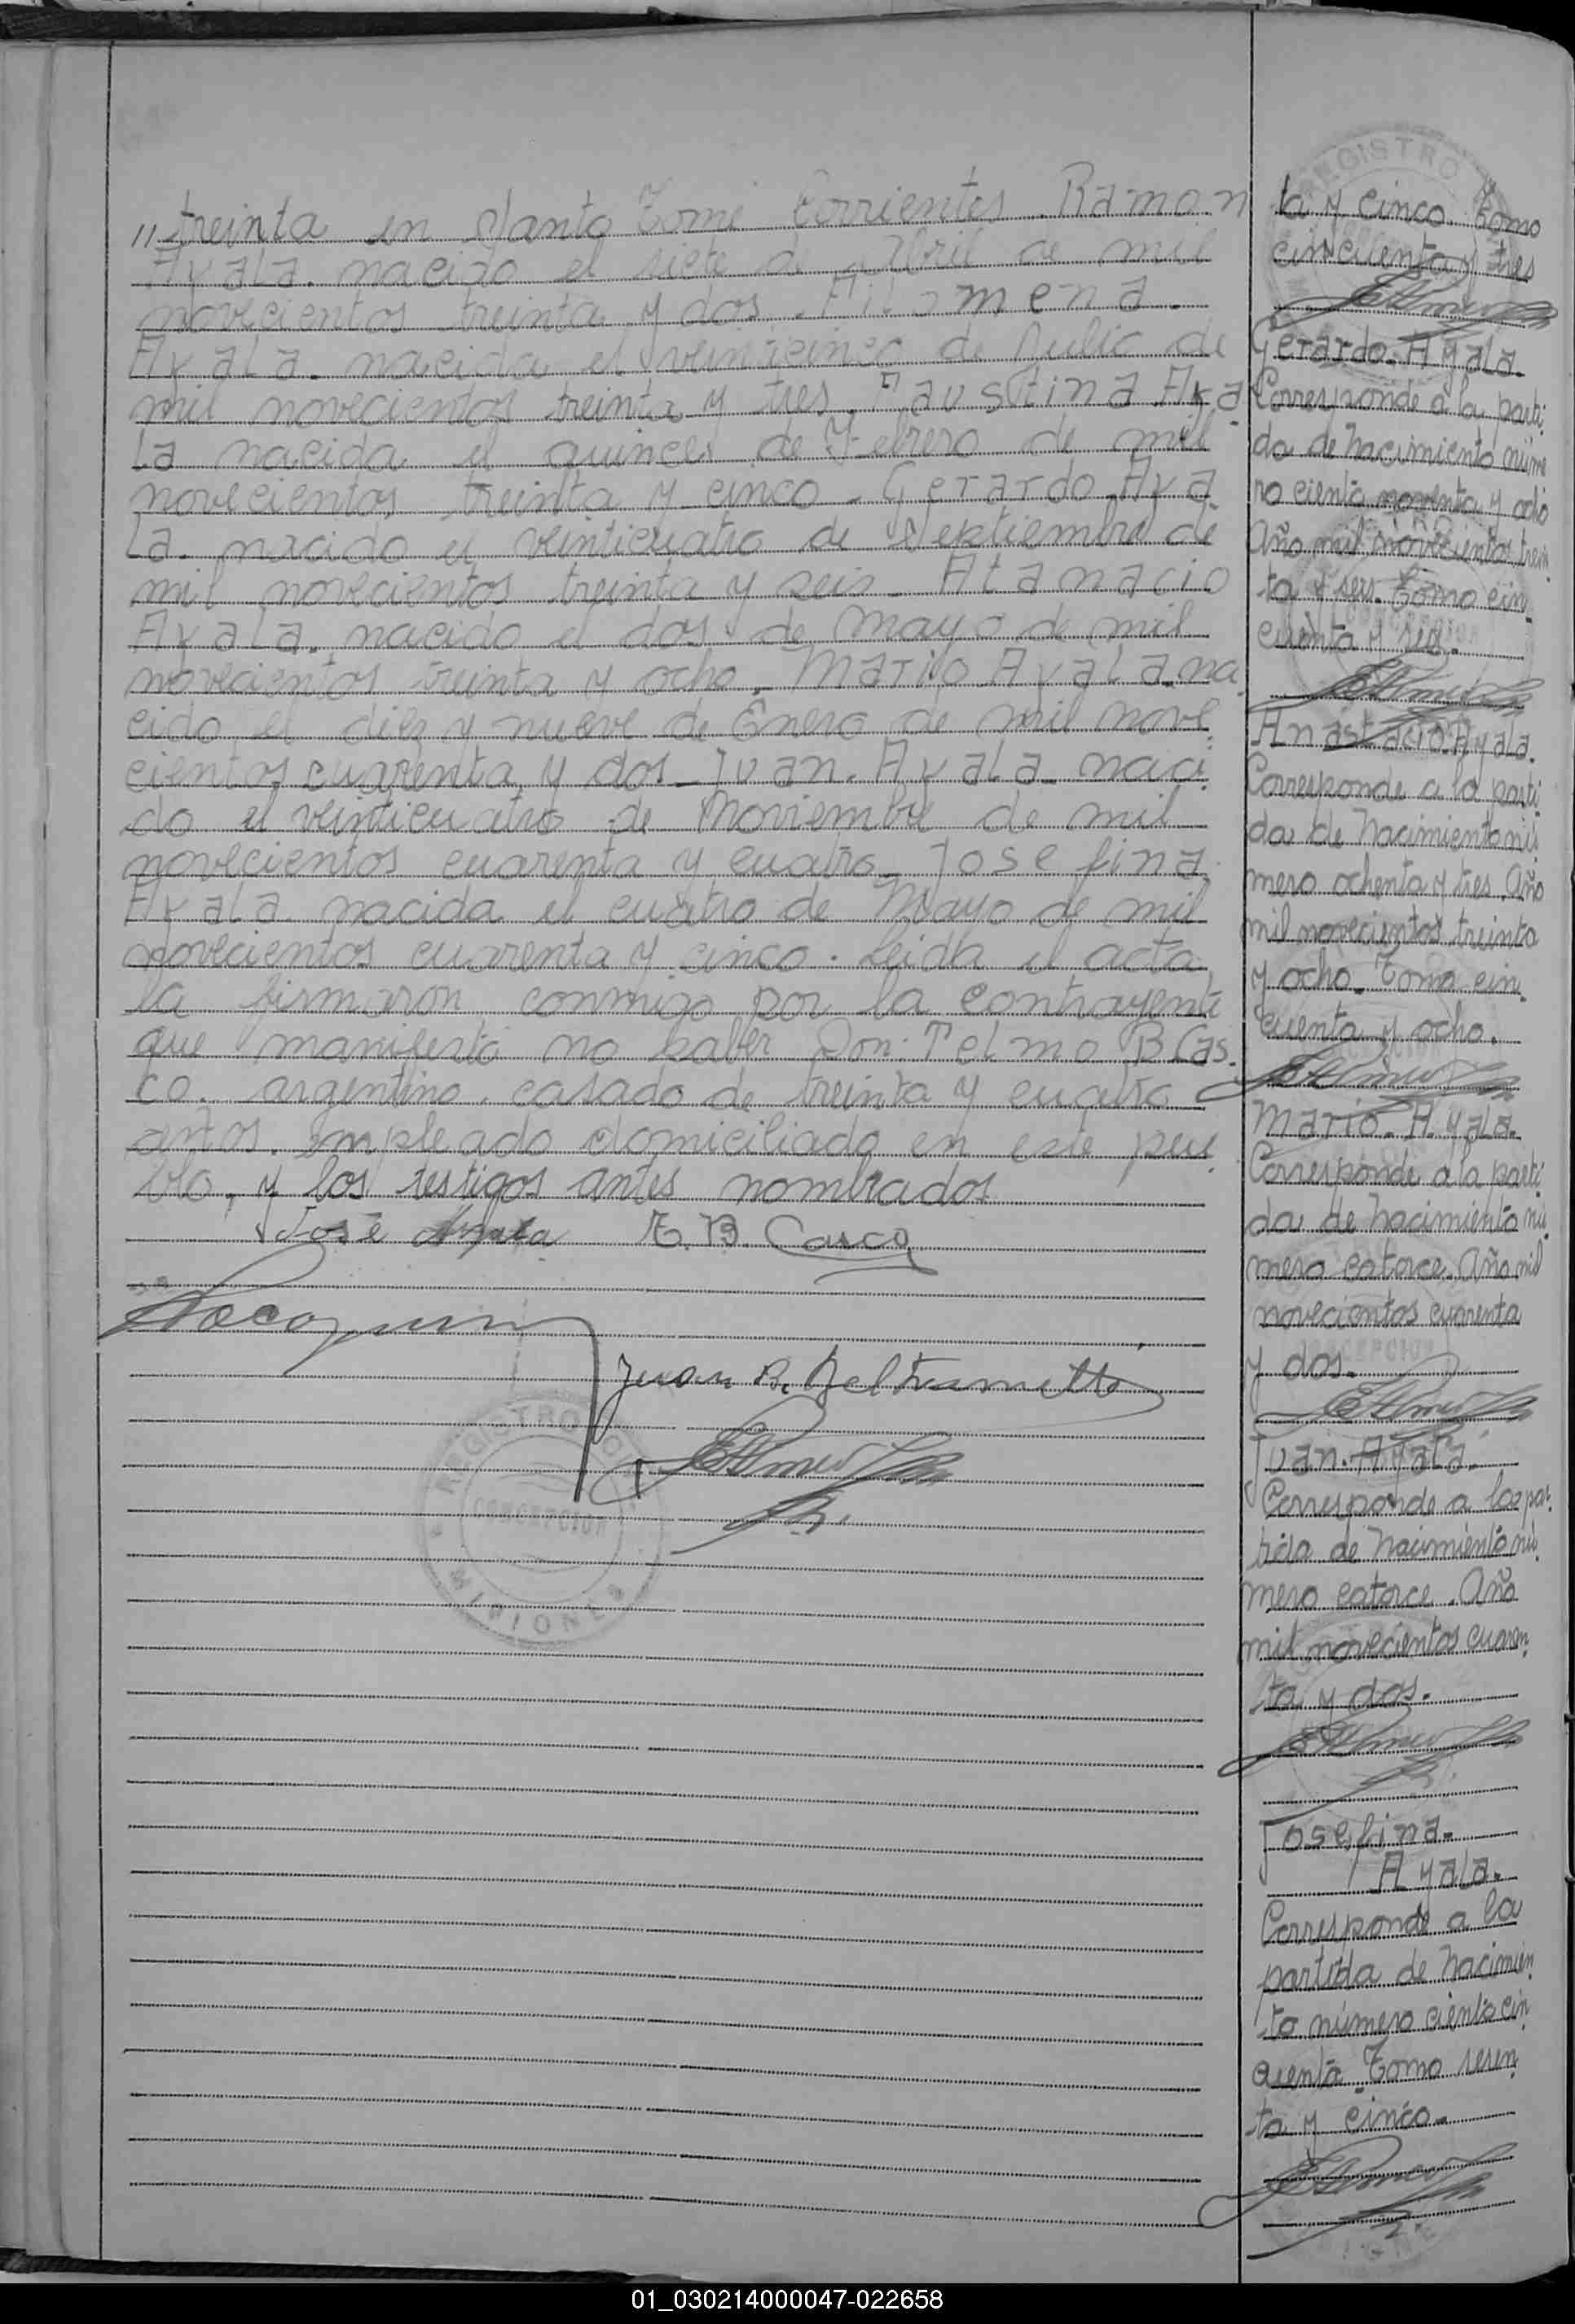 "treinta en Santo Tomé Corrientes. Ramon
Ayala. nacido el siete de Abril de mil
novecientos treinta y dos. Filomena.
Ayala. nacida el veinticinco de Julio de
mil novecientos treinta y tres. Faustina Aya
la nacida el quince de Febrero de mil
novecientos treinta y cinco - Gerardo Aya
la. nacido el veinticuatro de Septiembre de
mil novecientos treinta y seis - Atanacio
Ayala. nacido el dos de Mayo de mil
novecientos treinta y ocho. Mario Ayala. na
cido el diez y nueve de Enero de mil nove
cientos cuarenta y dos - Juan. Ayala. naci
do el veinticuatro de Noviembre de mil
novecientos cuarenta y cuatro - Josefina
Ayala nacida el cuatro de Mayo de mil
novecientos cuarenta y cinco. Leida el acta
la firmaron conmigo por la contrayente
que manifestó no saber Don: Telmo B Cas.
co. argentino. casado de treinta y cuatro
años. Empleado domiciliado en este pue
blo, y los testigos antes nombrados
José Ayala T. B. Casco
Juan B. Beltrametti
REGISTRO
CONCEPCION
MISIONES
ta y cinco. Tomo
cincuenta y tres
Gerardo. Ayala.
Corresponde a la parti
da de Nacimiento núme
ro ciento noventa y ocho
Año mil novecientos trein
ta y seis. Tomo cin
cuenta y seis.
Anastacio. Ayala.
Corresponde a la parti
da de Nacimiento nú
mero ochenta y tres. Año
mil novecientos treinta
y ocho. Tomo cin
cuenta y ocho.
Mario. Ayala.
Corresponde a la parti
da de Nacimiento nú
mero catorce. Año mil
novecientos cuarenta
y dos.
Juan. Ayala.
Corresponde a la par
tida de Nacimiento nú
mero catorce. Año
mil novecientos cuaren
ta y dos.
Josefina.
Ayala.
Corresponde a la
partida de Nacimien
to número ciento cin
cuenta. Tomo sesen
ta y cinco.
01_030214000047-022658